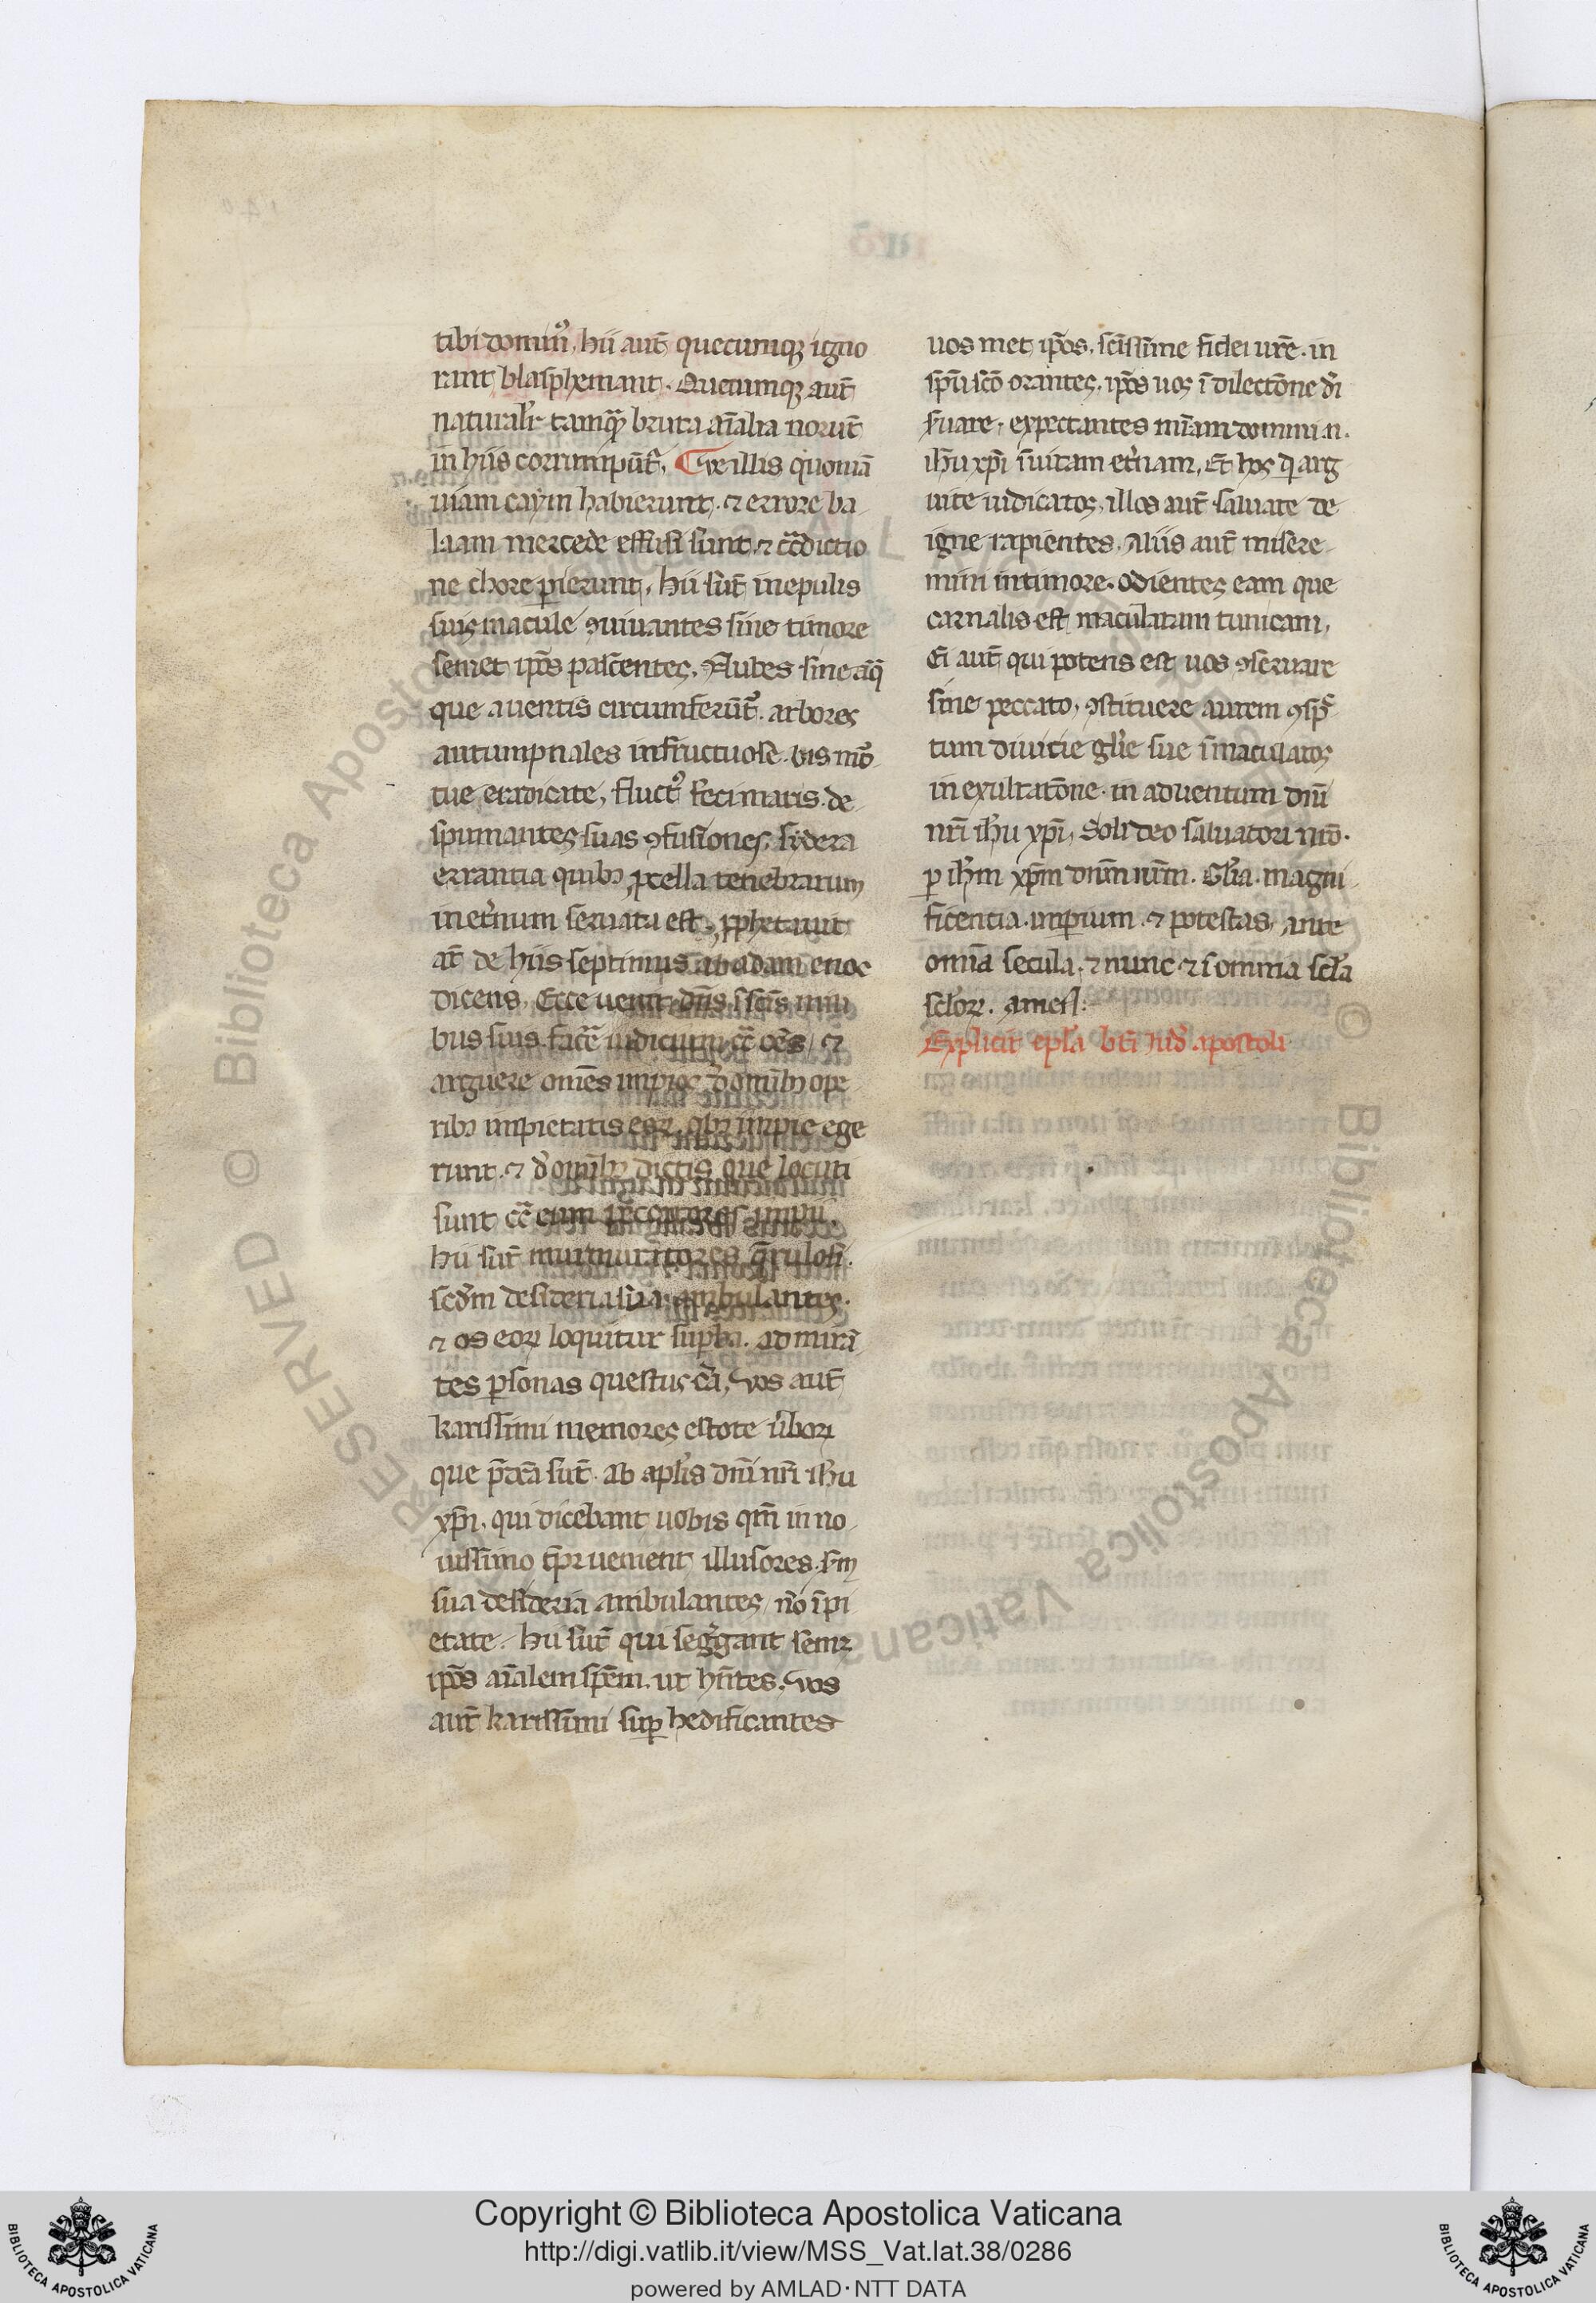 tibi dominꝰ, hii aut̄ quecumqꝫ igno
rant blasphemant. Quecumqꝫ aut̄
naturalr̄ tamqᷓ bruta aīalia norūt
in hiis corrumpūt᷑. Ve illis quoniā
uiam cayin habierunt. ⁊ errore ba
laam mercede effusi sunt ⁊ cᷓdictio
ne chore ꝑierunt, hii sūt in epulis
suis macule ꝯuiuantes sine timore
semet ip̄os pascentes. Nubes sine aq̄
que a uentis circumferūt᷑. arbores
autumpnales infructuose. bis mō
tue eradicate, fluctꝰ feri maris. de
spumantes suas ꝯfusiones. sydera
errantia quibꝫ ꝓcella tenebrarum
in et̄num seruata est. ꝓphetauit
aūt de hiis septimus ab adam enoc
dicens. Ecce uenit dn̄s ī scīs mili
bus suis. facē iudicium cᷓ oēs, ⁊
arguere omēs impios d̄ omībꝫ ope
ribꝫ impietatis eoꝝ. qbꝫ impie ege
runt. ⁊ d̄ omībꝫ dictis que locuti
sunt cᷓ eum pccatores impii.
hii sūt murmuratores q̄rulosi.
scd̄m desideria sua ambulantes.
⁊ os eoꝝ loquitur suꝑba. admirā
tes ꝑsonas questus cā, vos aut̄
karissimi memores estote ūboꝝ
que p̄dc̄a sūt. ab apl̄is dn̄i nr̄i ih̄u
xp̄i. qui dicebant uobis qm̄ in no
uissimo tp̄r uenient illusores. sm̄
sua desideria ambulantes, nō īpi
etate. hii sūt qui segͣgant semꝫ
ip̄os aīalem sp̄em. ut hn̄tes. vos
aut̄ karissimi suꝑ hedificantes
uos met ip̄os. scīssime fidei ur̄e. in
sp̄u scō orantes. ip̄os uos ī dilectōne dī
s̄uare. expectantes mīam domini n.
ih̄u xp̄i ī uitam et̄nam, Et hos qͥ arg
uite iudicatos, illos aut̄ saluate de
igne rapientes. Aliis aut̄ misere
mini in timore. odientes eam que
carnalis est maculatam tunicam.
Ei aut̄ qui potens est uos ꝯseruare
sine peccato, ꝯstituere autem ꝯsp̄c
tum diuitie gl̄ie sue īmaculatos
in exultatōne. in aduentum dn̄i
nr̄i ih̄u xp̄i, Soli deo saluatori nr̄o.
ꝑ ih̄m xp̄m dn̄m nr̄m. Gl̄ia. magni
ficentia. imꝑium. ⁊ potestas, ante
omīa secula. ⁊ nunc ⁊ ī omnia scl̄a
scl̄oꝝ. amen.
Explicit epl̄a bt̄i iud̄ apostoli
Copyright © Biblioteca Apostolica Vaticana
http://digi.vatlib.it/view/MSS_Vat.lat.38/0286
powered by AMLAD·NTT DATA